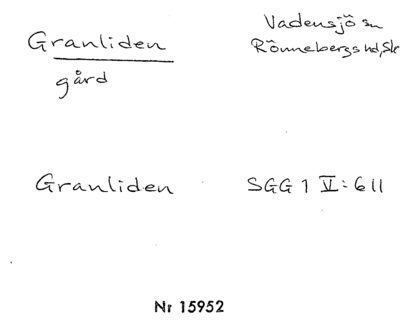 Granliden
gård
Vadensjö sn
Rönnebergs hd, Sk
Granliden
SGG 1 V:611
Nr 15952